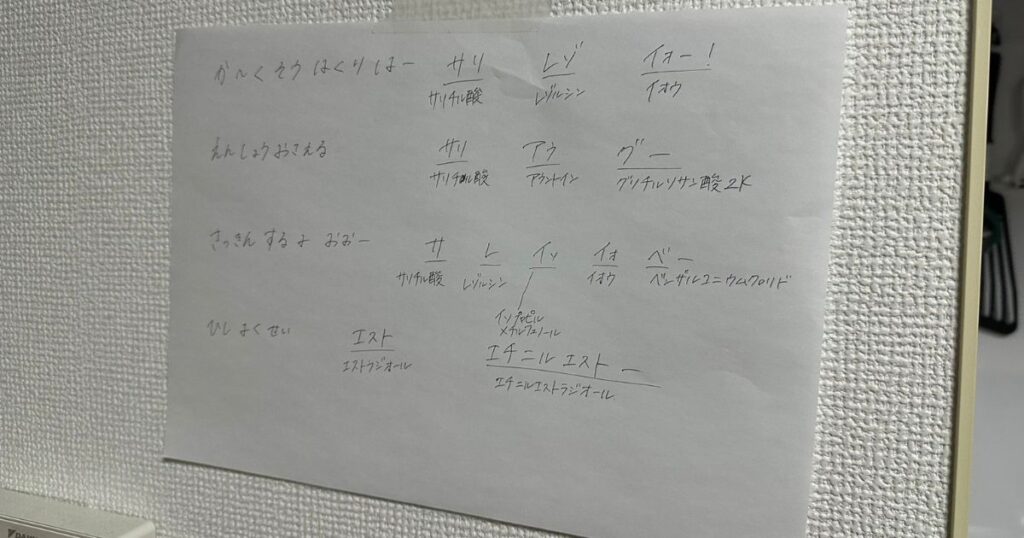 かくそうはくりはー サリ レゾ イオー!
サリチル酸 レゾルシン イオウ
えんしょうおさえる サリ アラ グー
サリチル酸 アラントイン グリチルリサン酸2K
さっきんするよ おおー サ レ イソ イオ ベー
サリチル酸 レゾルシン イオウ ベンザルコニウムクロリド
イソプロピル
メチルフェノール
ひしよくせい エスト エチニルエストー
エストラジオール エチニルエストラジオール